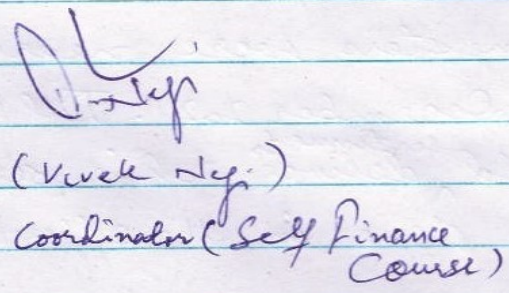 (Vivek Negi)
Coordinator (Self Finance
Course)